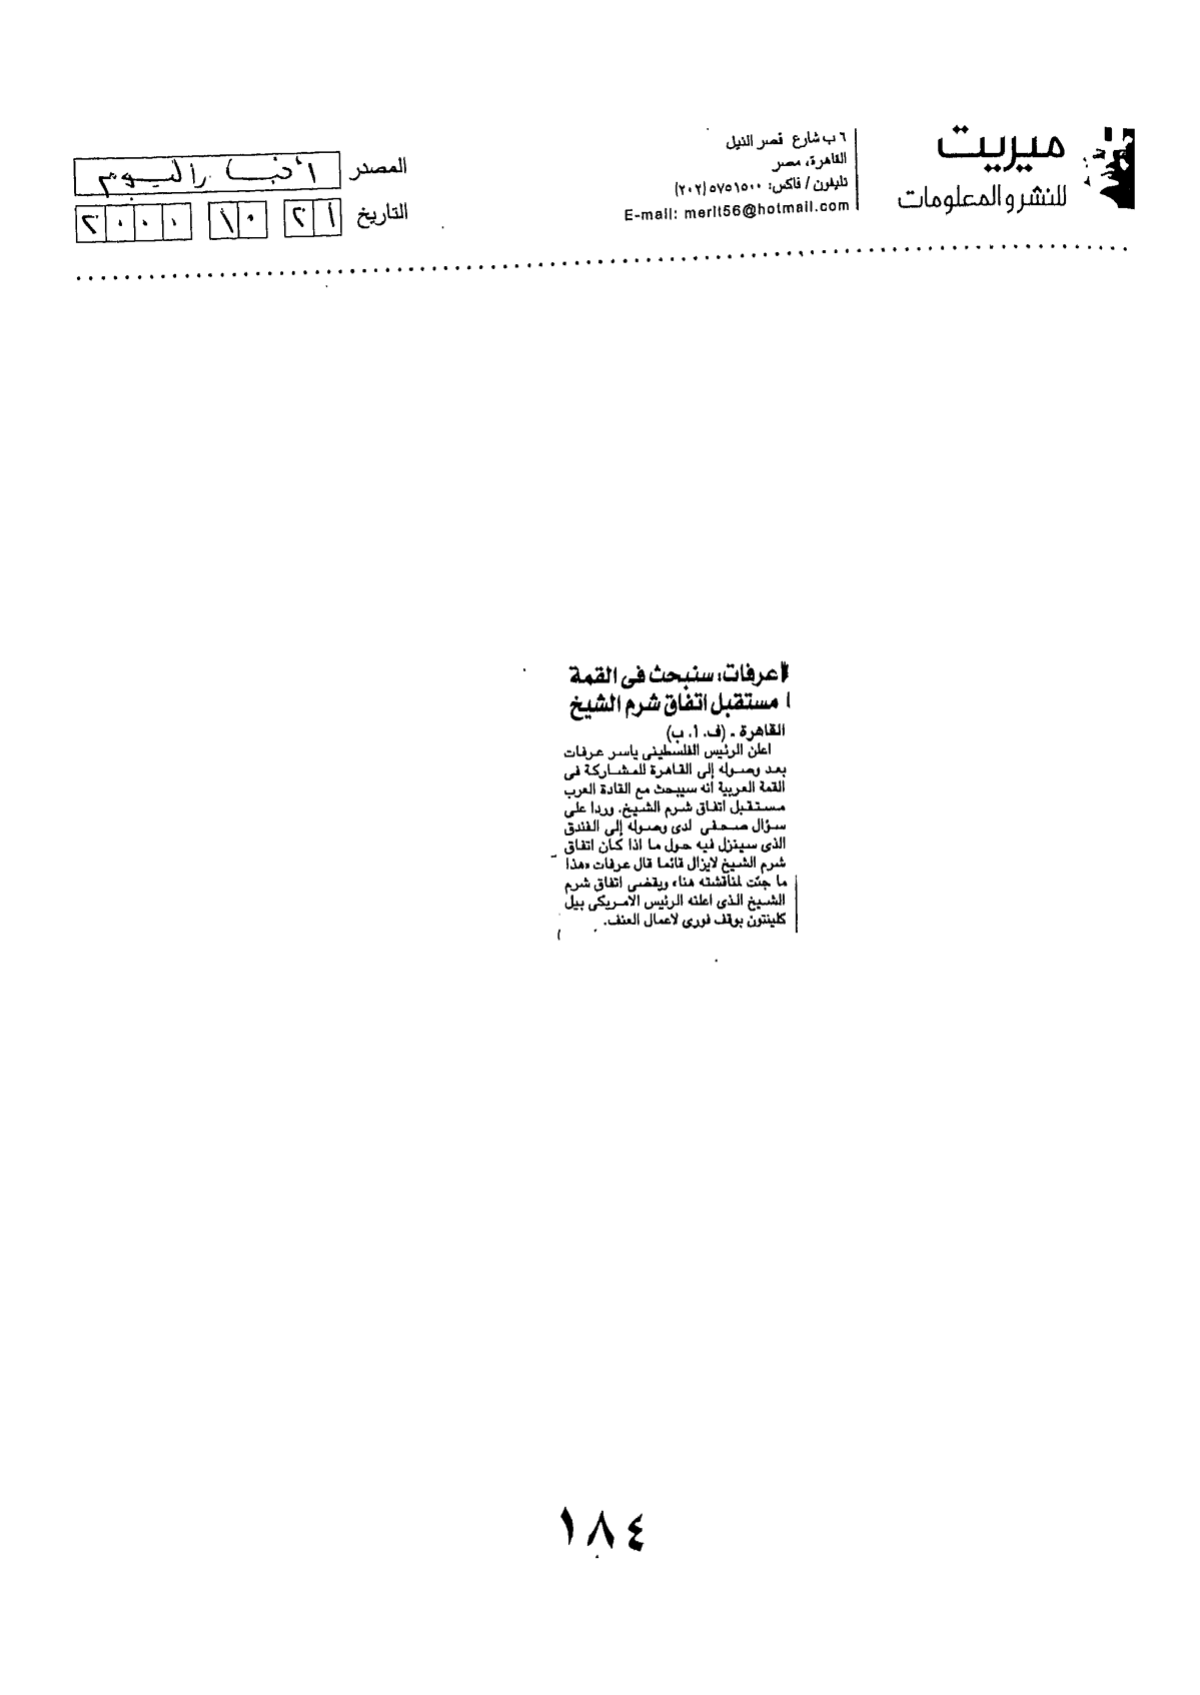 ميريت
للنشر والمعلومات
٦ ب شارع قصر النيل
القاهرة، مصر
تليفون / فاكس: ٥٧٥١٥٠٠ (٢٠٢)
E-mail: merit56@hotmail.com
المصدر أخبار اليوم
التاريخ ٢١ ١٠ ٢٠٠٠
عرفات: سنبحث فى القمة
مستقبل اتفاق شرم الشيخ
القاهرة - (ف. أ. ب)
اعلن الرئيس الفلسطينى ياسر عرفات
بعد وصوله إلى القاهرة للمشاركة فى
القمة العربية أنه سيبحث مع القادة العرب
مستقبل اتفاق شرم الشيخ. وردا على
سؤال صحفى لدى وصوله إلى الفندق
الذى سينزل فيه حول ما اذا كان اتفاق
شرم الشيخ لايزال قائما قال عرفات «هذا
ما جئت لمناقشته هنا» ويقضى اتفاق شرم
الشيخ الذى اعلنه الرئيس الامريكى بيل
كلينتون بوقف فورى لاعمال العنف.
١٨٤